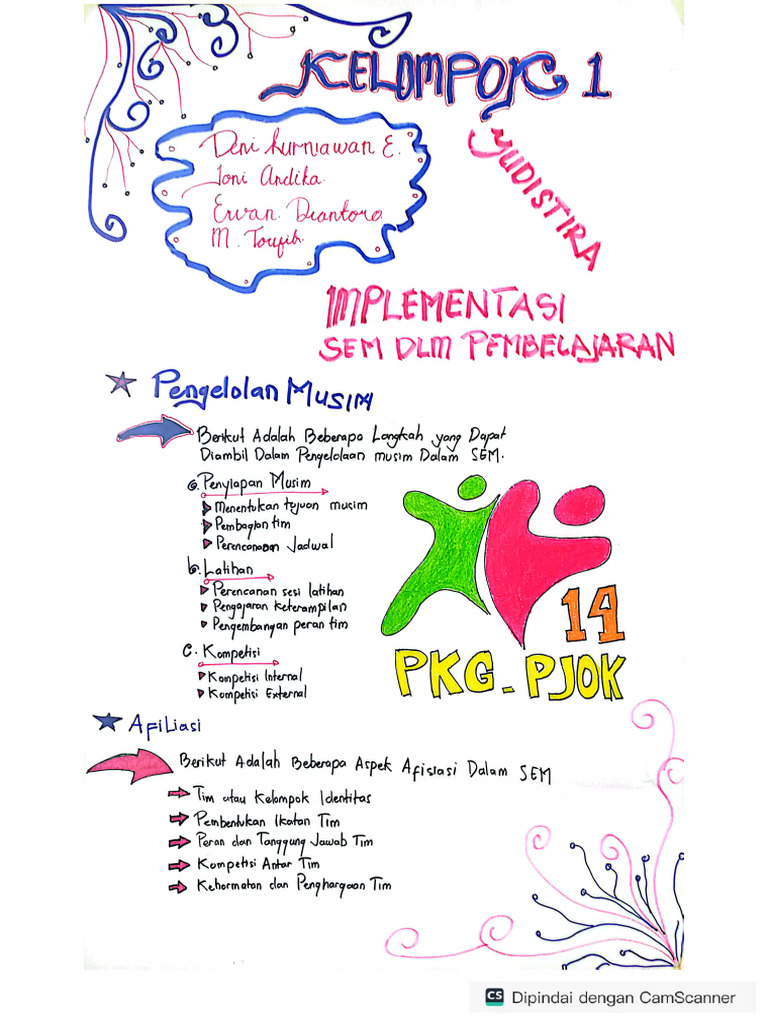 KELOMPOK 1
Deni kurniawan E.
Joni Andika
Erwan Diantoro
M. Toufik
YUDISTIRA
IMPLEMENTASI
SEM DLM PEMBELAJARAN
Pengelolan Musim
Berikut Adalah Beberapa Langkah yang Dapat
Diambil Dalam Pengelolaan musim Dalam SEM.
a. Penyiapan Musim
Menentukan tujuan musim
Pembagian tim
Perencanaan Jadwal
b. Latihan
Perencanan sesi latihan
Pengajaran keterampilan
Pengembangan peran tim
c. Kompetisi
Kompetisi Internal
Kompetisi External
14
PKG - PJOK
Afiliasi
Berikut Adalah Beberapa Aspek Afisiasi Dalam SEM
Tim atau Kelompok Identitas
Pembentukan Ikatan Tim
Peran dan Tanggung Jawab Tim
Kompetisi Antar Tim
Kehormatan dan Penghargaan Tim
CS Dipindai dengan CamScanner